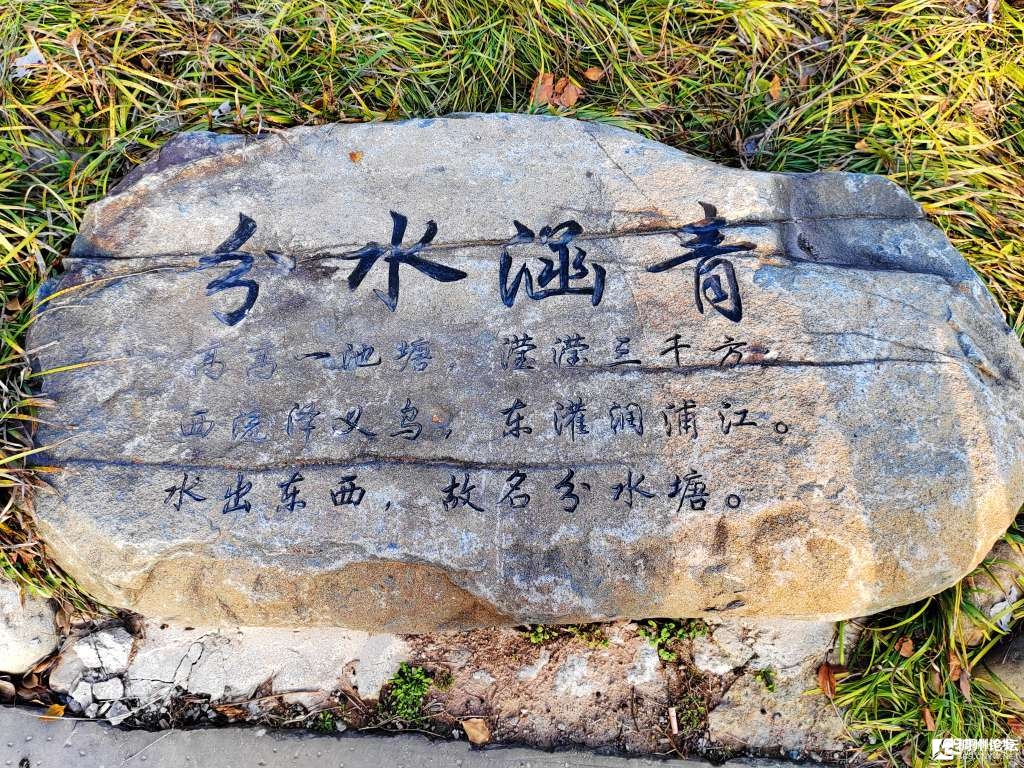 分水涵青
高高一池塘，滢滢三千方。
西浇泽义乌，东灌润浦江。
水出东西，故名分水塘。